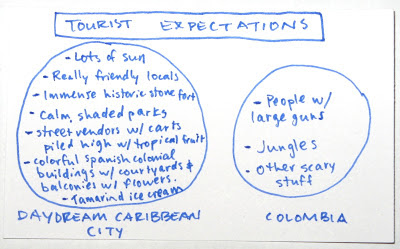 TOURIST EXPECTATIONS
- Lots of sun
- Really friendly locals
- Immense historic stone fort
- Calm, shaded parks
- street vendors w/ carts
piled high w/ tropical fruit
- colorful Spanish colonial
buildings w/ courtyards &
balconies w/ flowers.
- Tamarind ice cream
DAYDREAM CARIBBEAN
CITY
- People w/
large guns
- Jungles
- Other scary
stuff
COLOMBIA